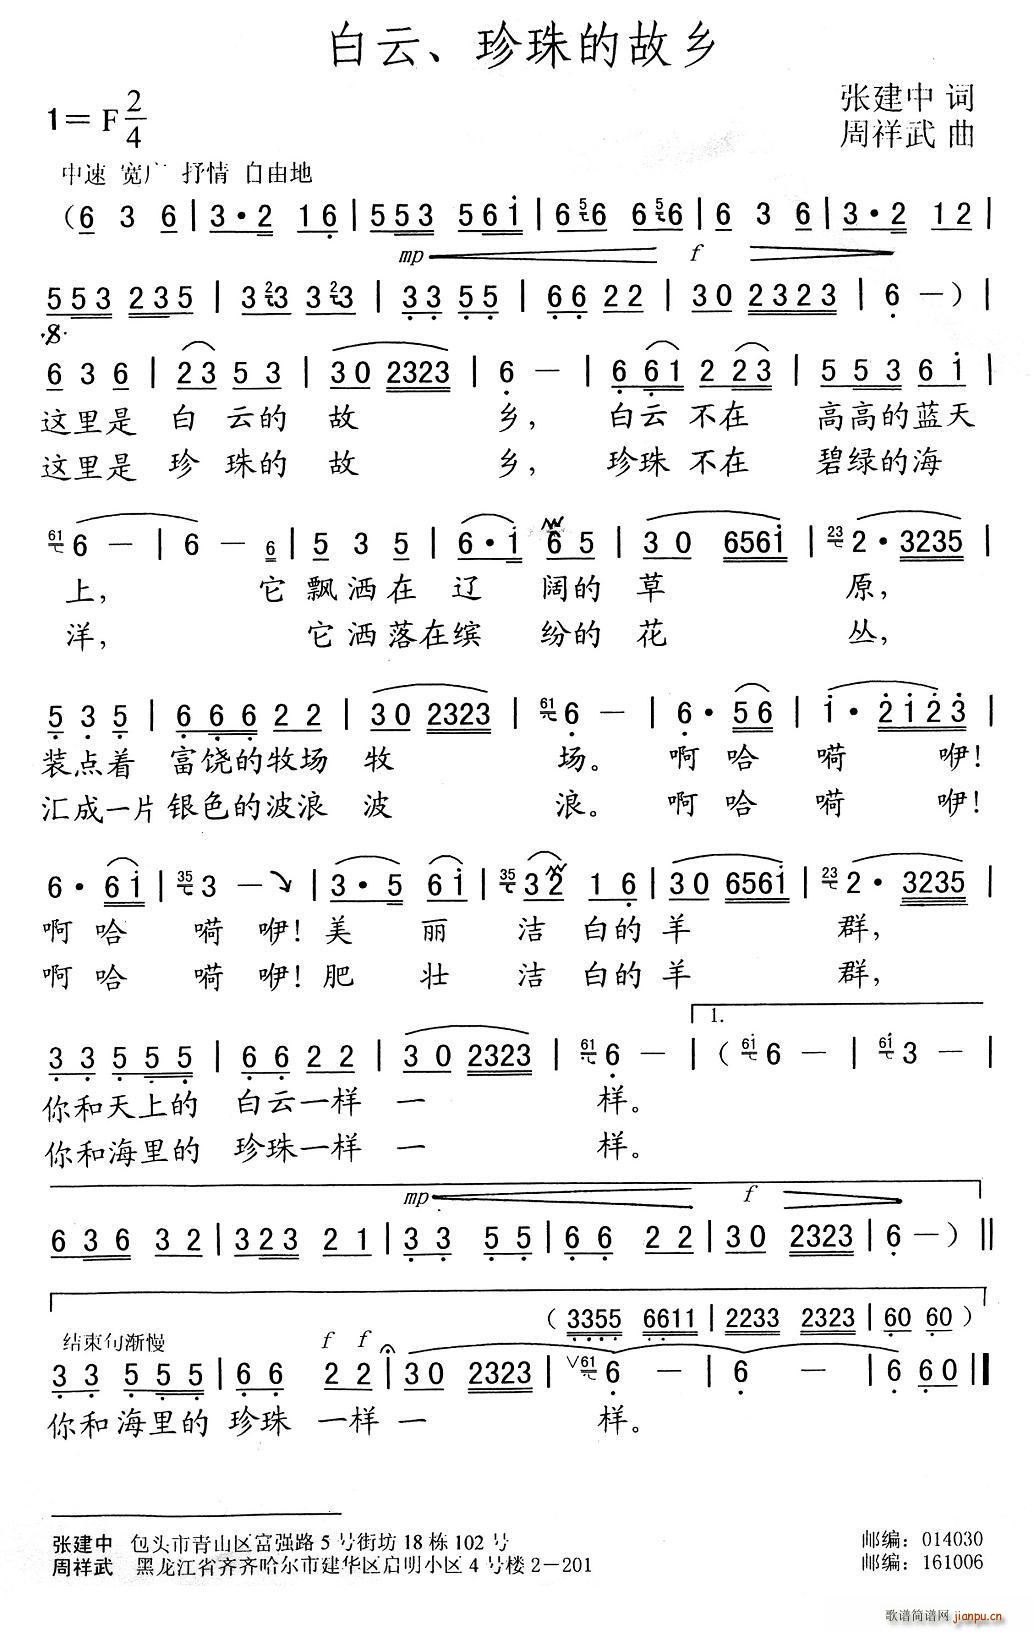 白云、珍珠的故乡
1= F 2/4
张建中 词
周祥武 曲
中速 宽广 抒情 自由地
(6 3 6 | 3·2 16 | 553 561 | 6 56 6 56 | 6 3 6 | 3·2 12 |
mp f
553 235 | 3 23 3 23 | 33 55 | 66 22 | 30 2323 | 6 —) |
6 3 6 | 23 53 | 30 2323 | 6 — | 661 223 | 5 53 61 |
这里是 白 云的 故 乡, 白云 不在 高高的蓝天
这里是 珍 珠的 故 乡, 珍珠 不在 碧绿的海
61 6 — | 6 — 6 | 5 3 5 | 6·1 65 | 30 6561 | 23 2·3235 |
上, 它 飘洒在 辽 阔的 草 原,
洋, 它 洒落在缤 纷的 花 丛,
5 3 5 | 666 22 | 30 2323 | 61 6 — | 6·56 | 1·2123 |
装点着 富饶的牧场 牧 场。 啊 哈 嗬 咿!
汇成一片 银色的波浪 波 浪。 啊 哈 嗬 咿!
6·61 | 35 3 — | 3·5 61 | 35 32 16 | 30 6561 | 23 2·3235 |
啊 哈 嗬 咿! 美 丽 洁 白的 羊 群,
啊 哈 嗬 咿! 肥 壮 洁 白的 羊 群,
1.
33 555 | 66 22 | 30 2323 | 61 6 — | (61 6 — | 61 3 — |
你和天上的 白云一样 一 样。
你和海里的 珍珠一样 一 样。
mp f
636 32 | 323 21 | 33 55 | 66 22 | 30 2323 | 6 —) ‖
(3355 6611 | 2233 2323 | 60 60)
结束句渐慢 f f
33 555 | 66 22 | 30 2323 | 61 6 — | 6 — | 6 60 ‖
你和海里的 珍珠 一样 一 样。
张建中 包头市青山区富强路5号街坊18栋102号 邮编: 014030
周祥武 黑龙江省齐齐哈尔市建华区启明小区4号楼2-201 邮编: 161006
歌谱简谱网 jianpu.cn